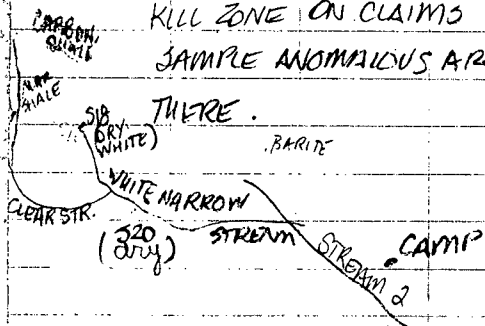 KILL ZONE ON CLAIMS
SAMPLE ANOMALOUS AR
THERE.
CARBON.
SHALE
SHALE
518
(DRY
WHITE)
BARITE
WHITE NARROW
STREAM
CLEAR STR.
(520
dry)
STREAM 2
CAMP